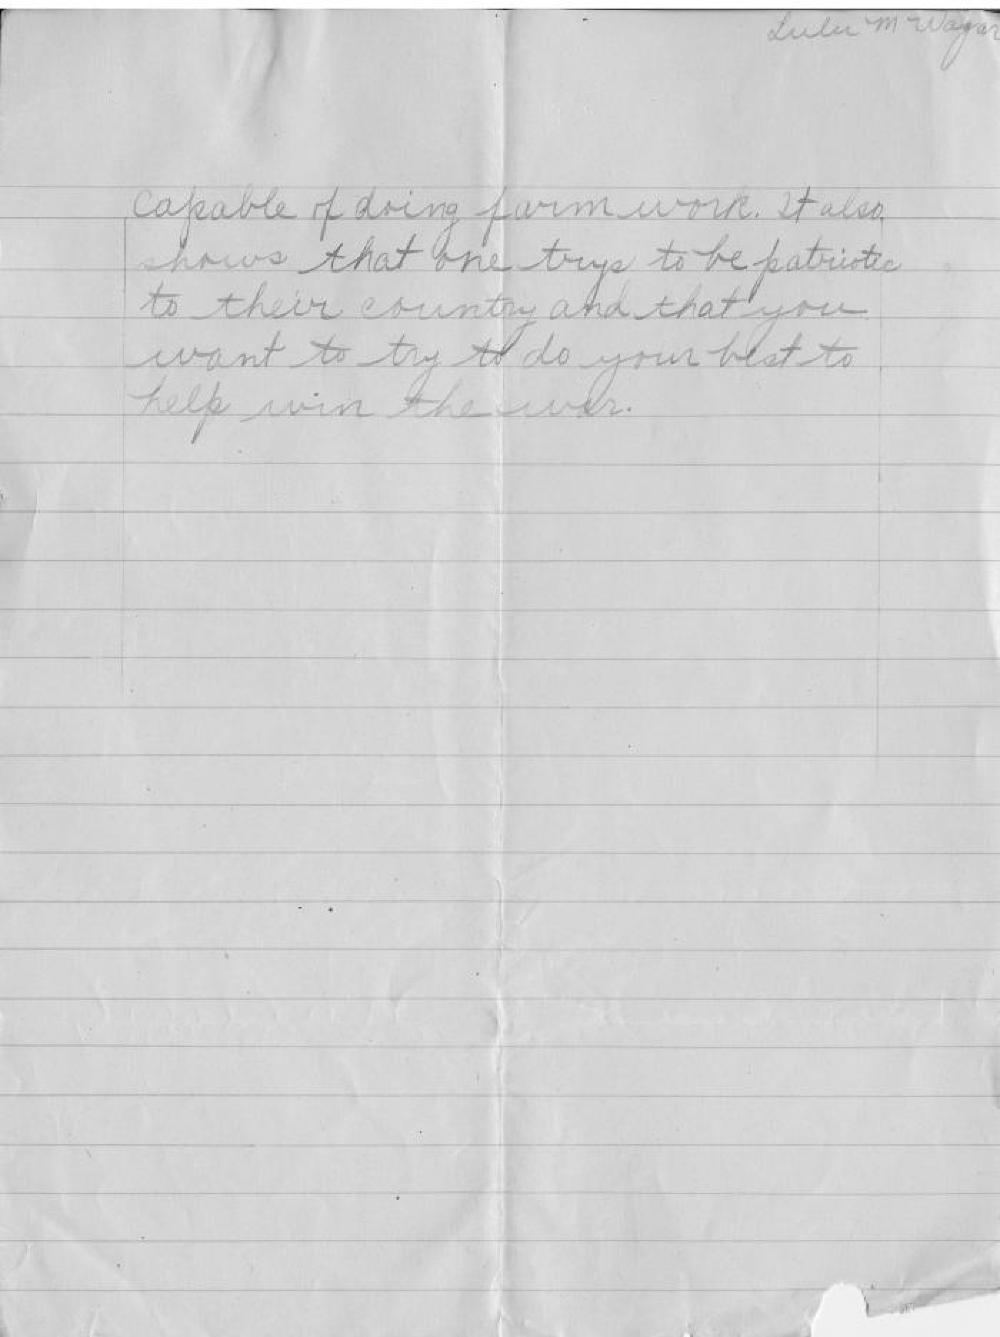 Lulu M Wagar
capable of doing farm work. It also
shows that one trys to be patriotic
to their country and that you
want to try to do your best to
help win the war.